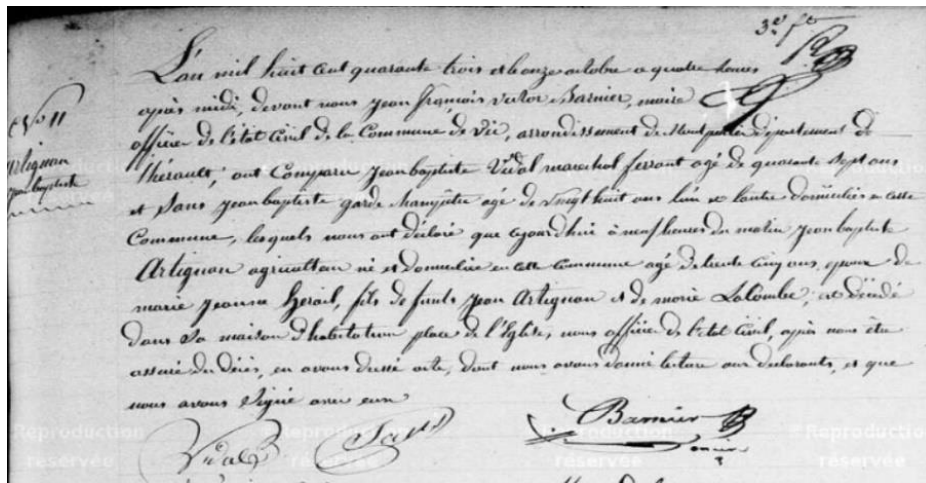 3e fo
L'an mil huit cent quarante trois et le onze octobre a quatre heures
après midi, devant nous Jean françois victor Barnier, maire
officier de l'état Civil de la Commune de Vic, arrondissement de Montpellier département de
l'hérault; ont Comparu Jean baptiste Vidal marechal ferrant agé de quarante Sept ans
et Sans Jean baptiste garde champêtre agé de vingt huit ans l'un et l'autre domiciliés en cette
Commune, lesquels nous ont declaré que cejourdhui à neuf heures du matin Jean baptiste
Artignan agriculteur né et domicilié en cette commune agé de trente cinq ans, epoux de
marie Jeanne herail, fils de feu Jean Artignan et de marie Lacombe; est décédé
dans Sa maison d'habitation place de l'Eglise, nous officier de l'etat Civil, après nous être
assuré du décès, en avons dressé acte, dont nous avons donné lecture aux declarants, et que
nous avons Signé avec eux
No 11
Artignan
Jean baptiste
Vidal
Barnier
maire
Reproduction réservée
Reproduction réservée
Reproduction réservée
Reproduction réservée